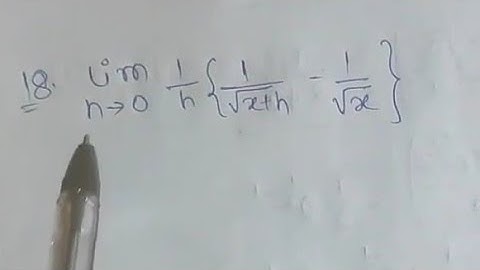 18. lim h→0 1/h { 1/√x+h - 1/√x }